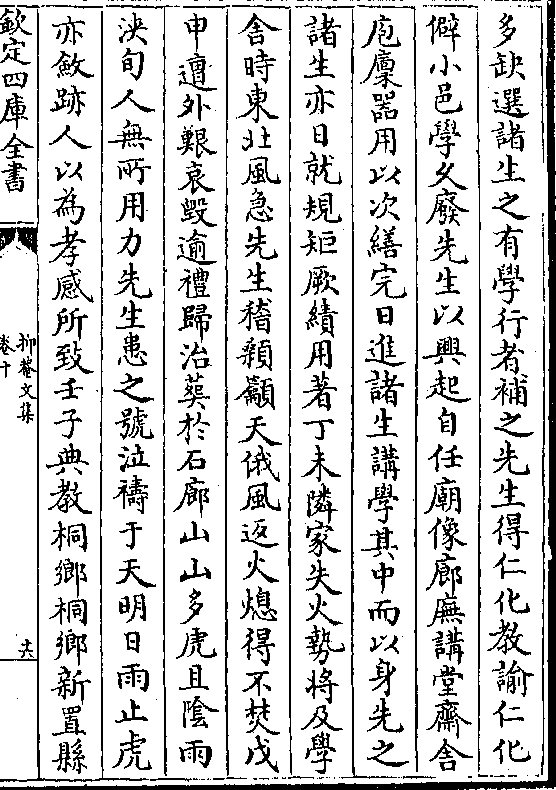 多缺選諸生之有學行者補之先生得仁化教諭仁化
僻小邑學久廢先生以興起自任廟像廊廡講堂齋舍
庖廩器用以次繕完日進諸生講學其中而以身先之
諸生亦日就規矩厥績用著丁未隣家失火勢將及學
舍時東北風急先生稽顙籲天俄風返火熄得不焚戊
申遭外艱哀毀逾禮歸治葬於石廊山山多虎且陰雨
浹旬人無所用力先生患之號泣禱于天明日雨止虎
亦斂跡人以為孝感所致壬子典教桐鄉桐鄉新置縣
欽定四庫全書
抑菴文集
卷十
六